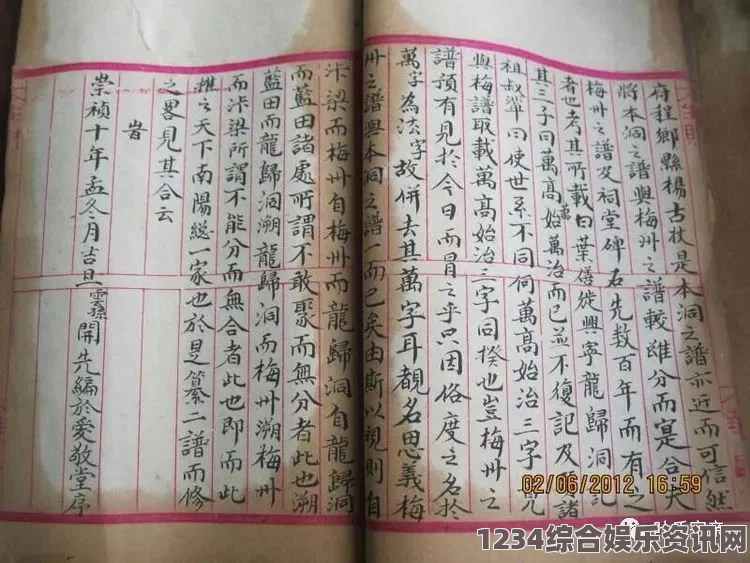 府程鄉縣楊古杖是本洞之譜亦近而可信然
將本洞之譜與梅州之譜較雖分而寔合夫
梅州之譜及祠堂碑石先数百年而有之
者也考其所載曰葉僐徙興寧龍歸洞記
其三子曰萬高始萬治而已並不復記及諸
祖叔輩曰使世系不同何萬高始治三字既
與梅譜取載萬高始治三字同揆也豈梅州之
譜預有見於今日而冒之乎只因俗度之名於
萬字為法字故併去其萬字耳覩名思義梅
州之譜與本洞之譜一而已矣由斯以視則自
汴梁而梅州自梅州而龍歸洞自龍歸洞
而藍田諸處所謂不敢聚而無分者此也溯
藍田而龍歸洞溯龍歸洞而梅州溯梅州
而汴梁所謂不能分而無合者此也即而此
推之天下南陽総一家也於是纂二譜而修
之畧見其合云
旹
崇禎十年孟冬月吉旦雲孫開先編於愛敬堂序
02/06/2012 16:59
1234综合娱乐资讯网